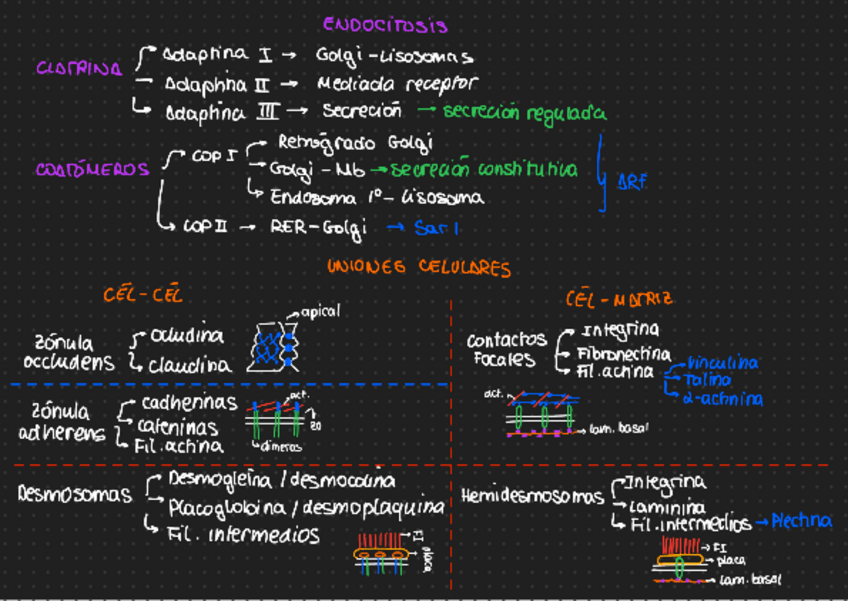 ENDOCITOSIS
CLATRINA
Adaptina I → Golgi-Lisosomas
Adaptina II → Mediada receptor
Adaptina III → Secreción → secreción regulada
COATÓMEROS
COP I
Retrógrado Golgi
Golgi - Mb → secreción constitutiva
Endosoma 1º - Lisosoma
ARF
COP II → RER-Golgi → Sar 1
UNIONES CELULARES
CÉL-CÉL
zónula occludens
ocludina
claudina
apical
zónula adherens
cadherinas
cateninas
Fil. actina
act.
zo
dímeros
Desmosomas
Desmogleína / desmocolina
Placoglobina / desmoplaquina
Fil. intermedios
FI
placa
CÉL-MATRIZ
contactos Focales
Integrina
Fibronectina
Fil. actina
vinculina
Talina
α-actinina
act.
lam. basal
Hemidesmosomas
Integrina
Laminina
Fil. intermedios → Plectina
FI
placa
lam. basal